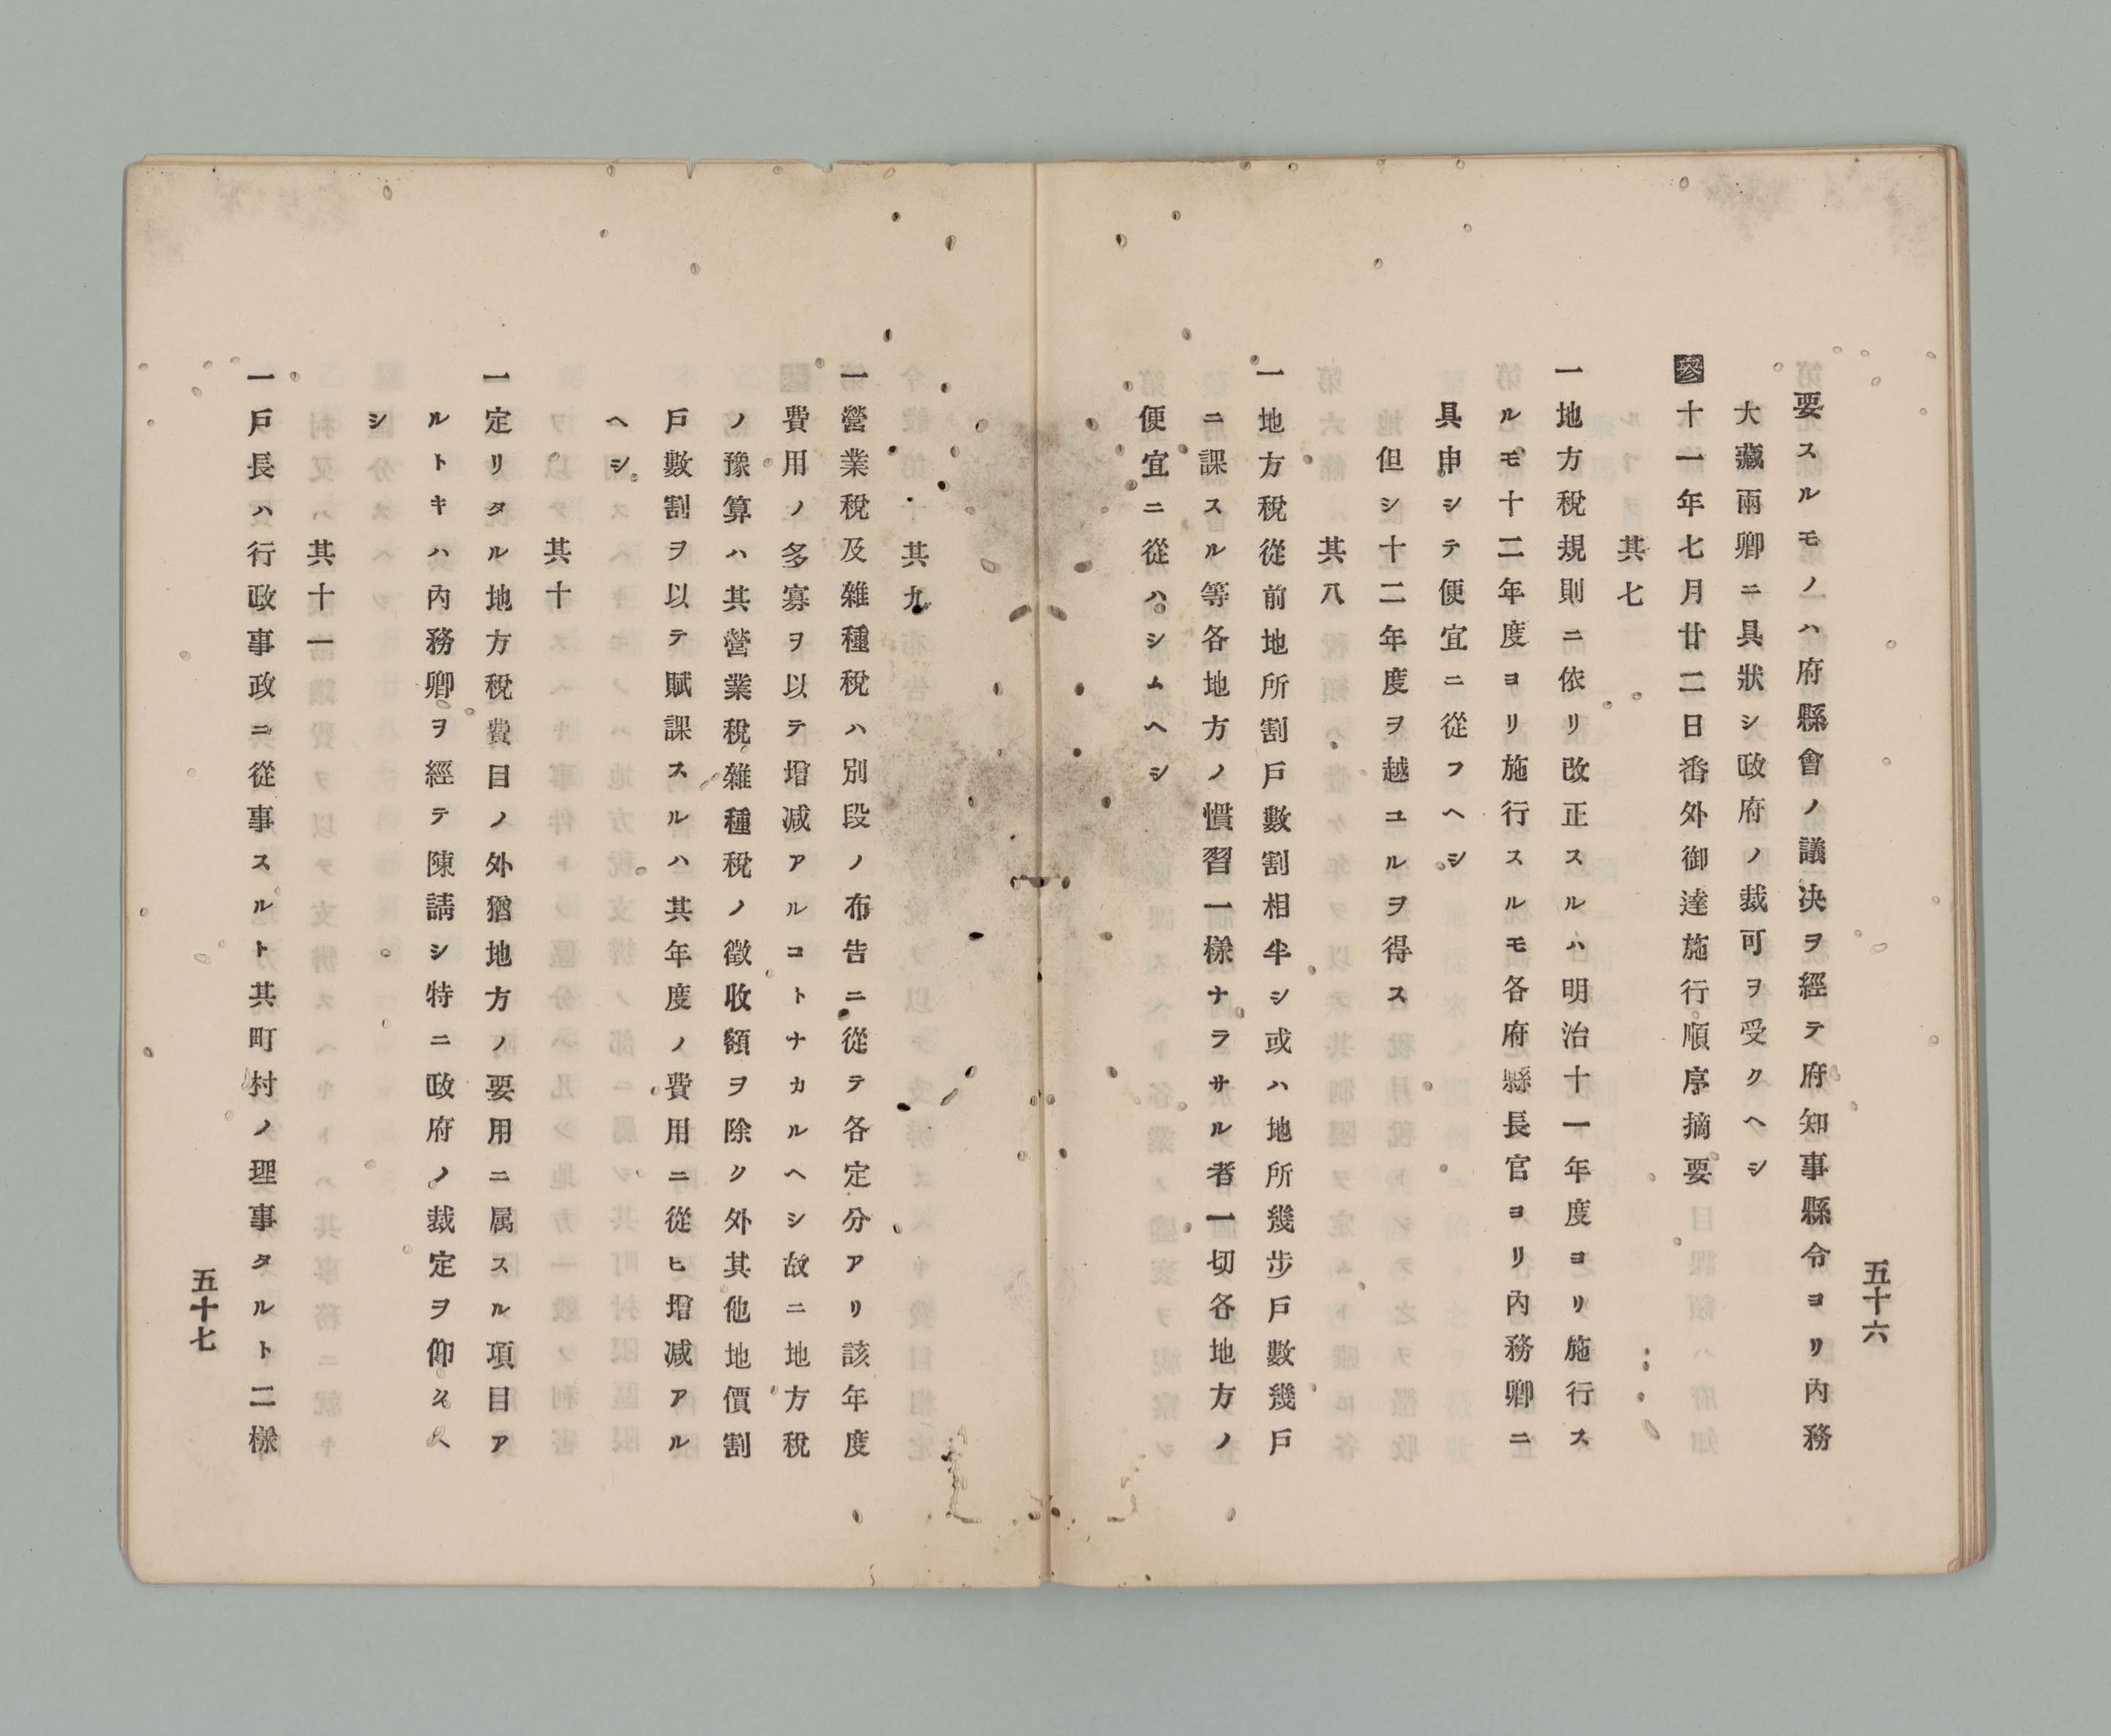 要スルモノハ府縣會ノ議决ヲ經テ府知事縣令ヨリ內務
大藏兩卿ニ具狀シ政府ノ裁可ヲ受クヘシ
參十一年七月廿二日番外御達施行順序摘要
其七
一地方稅規則ニ依リ改正スルハ明治十一年度ヨリ施行ス
ルモ十二年度ヨリ施行スルモ各府縣長官ヨリ內務卿ニ
具申シテ便宜ニ從フヘシ
但シ十二年度ヲ越ユルヲ得ス
其八
一地方稅從前地所割戶數割相半シ或ハ地所幾步戶數幾戶
ニ課スル等各地方ノ慣習一樣ナラサル者一切各地方ノ
便宜ニ從ハシムヘシ
五十六
其九
一營業稅及雜種稅ハ別段ノ布告ニ從テ各定分アリ該年度
費用ノ多寡ヲ以テ增减アルコトナカルヘシ故ニ地方稅
ノ豫算ハ其營業稅雜種稅ノ徵收額ヲ除ク外其他地價割
戶數割ヲ以テ賦課スルハ其年度ノ費用ニ從ヒ增减アル
ヘシ
其十
一定リタル地方稅費目ノ外猶地方ノ要用ニ属スル項目ア
ルトキハ內務卿ヲ經テ陳請シ特ニ政府ノ裁定ヲ仰クヘ
シ
其十一
一戶長ハ行政事政ニ從事スルト其町村ノ理事タルト二樣
五十七